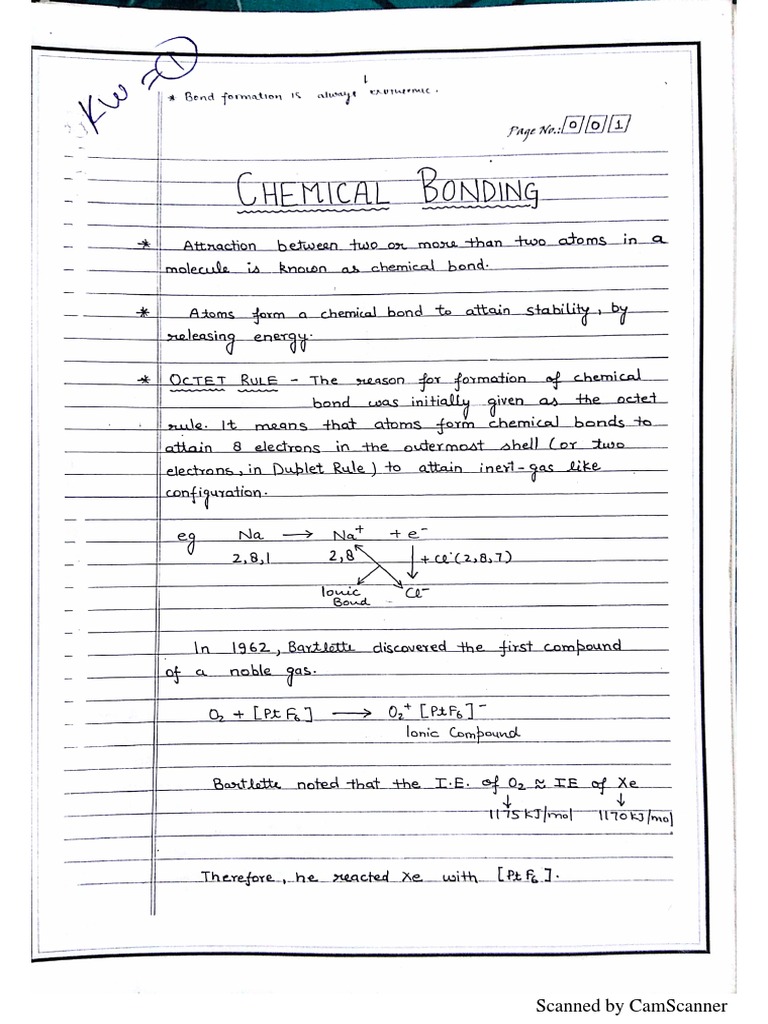 KW = 1
* Bond formation is always exothermic.
Page No.: 0 0 1
CHEMICAL BONDING
* Attraction between two or more than two atoms in a
molecule is known as chemical bond.
* Atoms form a chemical bond to attain stability, by
releasing energy.
* OCTET RULE - The reason for formation of chemical
bond was initially given as the octet
rule. It means that atoms form chemical bonds to
attain 8 electrons in the outermost shell (or two
electrons, in Duplet Rule) to attain inert-gas like
configuration.
eg Na → Na⁺ + e⁻
2,8,1 2,8 ↓ + Cl (2,8,7)
Ionic Bond Cl⁻
In 1962, Bartlette discovered the first compound
of a noble gas.
O₂ + [PtF₆] → O₂⁺ [PtF₆]⁻
Ionic Compound
Bartlette noted that the I.E. of O₂ ≈ IE of Xe
1175 KJ/mol 1170 KJ/mol
Therefore, he reacted Xe with [PtF₆].
Scanned by CamScanner